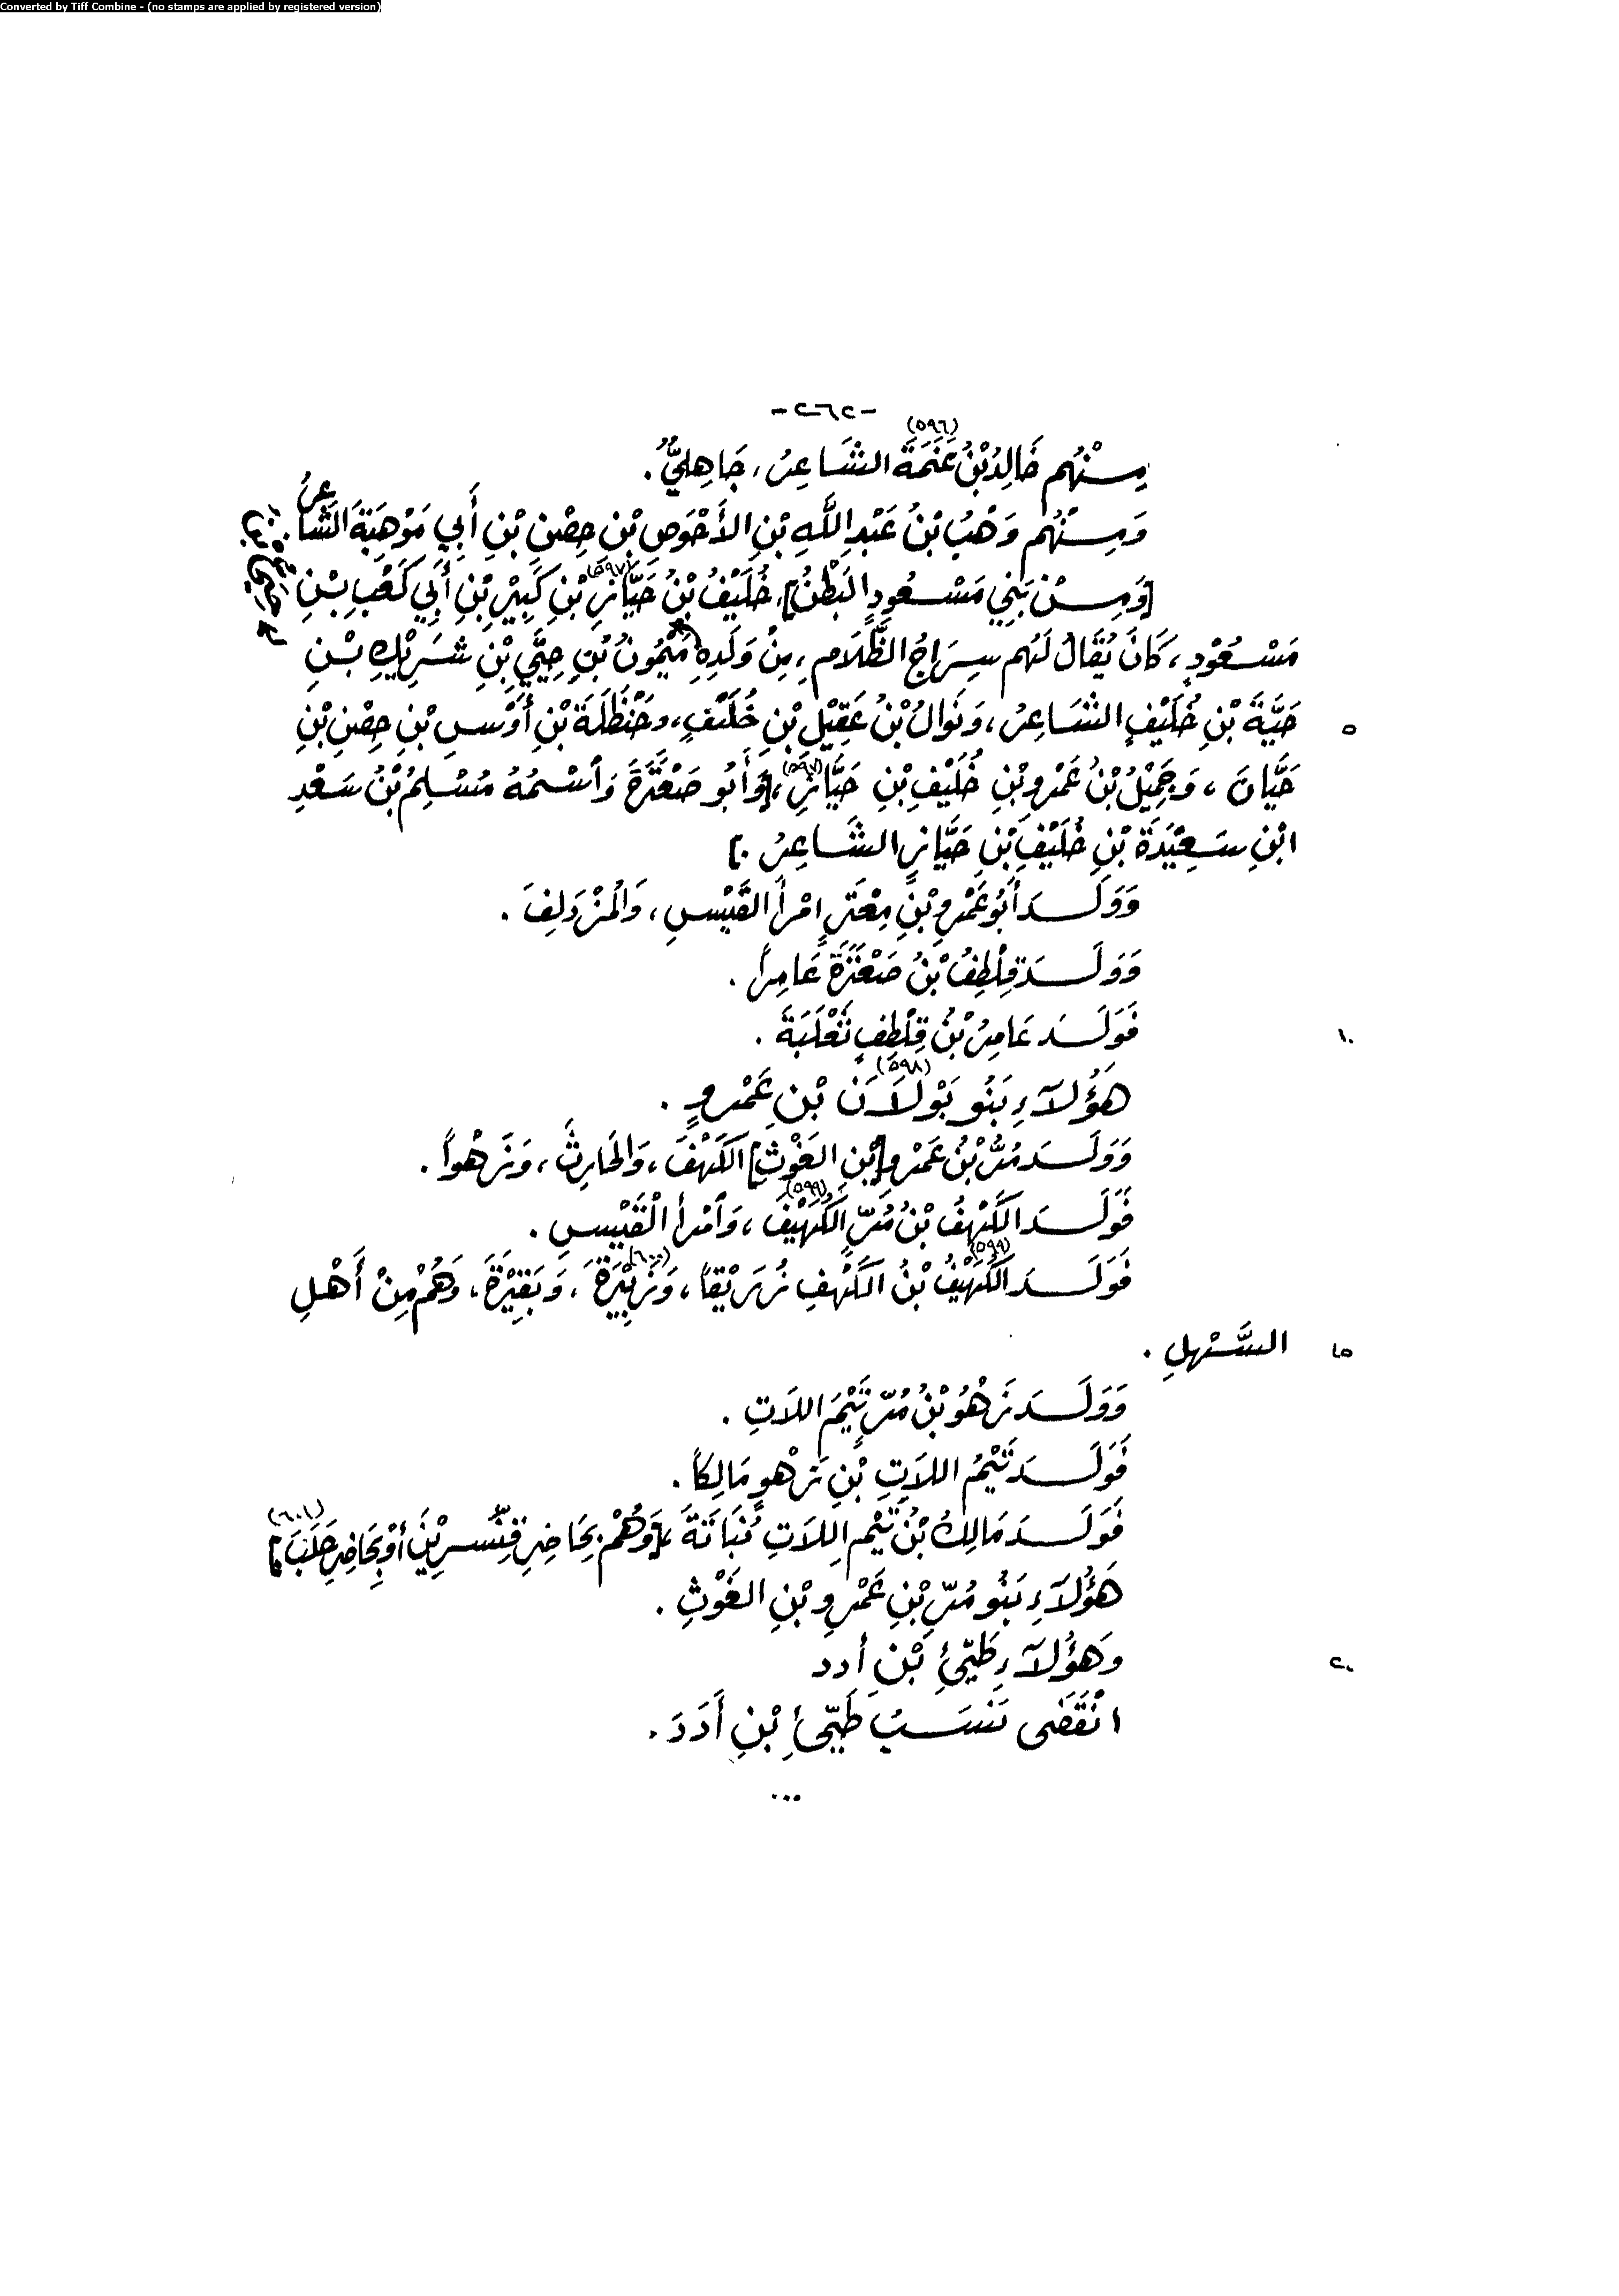 Converted by Tiff Combine - (no stamps are applied by registered version)
-٢٦٢-
مِنْهُم خَالِدُ بْنُ عَنَمَةَ (٥٩٦) الشَّاعِرُ، جَاهِلِيٌّ.
وَمِنْهُم وَهْبُ بْنُ عَبْدِ اللَّهِ بْنِ الأَحْوَصِ بْنِ حِصْنِ بْنِ أَبِي مَوْهِبَةَ الشَّاعِرُ.
[وَمِنْ بَنِي مَسْعُودٍ البَطْنُ]، خُلَيْفُ بْنُ حَيَّانِ (٥٩٧) بْنِ كَبِيْرِ بْنِ أَبِي كَعْبِ بْنِ
مَسْعُوْدٍ، كَانَ يُقَالُ لَهُم سِرَاجُ الظَّلَامِ، مِنْ وَلَدِهِ مَيْمُونُ بْنِ حِيَيِّ بْنِ شَرِيْكِ بْنِ
٥ حَيَّةَ بْنِ خُلَيْفٍ الشَّاعِرُ، وَنَوَالُ بْنُ عَقِيْلِ بْنِ خُلَيْفٍ، وحَنْظَلَةَ بْنِ أَوْسِ بْنِ حِصْنِ بْنِ
حَيَّانَ، وَجَمِيْلُ بْنُ عَمْرِو بْنِ خُلَيْفِ بْنِ حَيَّانِ (٥٩٧)، [وَأَبُو صَعْتَرَةَ وَاسْمُهُ مُسْلِمُ بْنُ سَعْدِ
ابْنِ سَعِيْدَةَ بْنِ خُلَيْفِ بْنِ حَيَّانِ الشَّاعِرُ.]
وَوَلَدَ أَبُو عَمْرِو بْنِ مِعْتَرٍ امْرأَ القَيْسِ، وَالمُزْدَلِفَ.
وَوَلَدَ قِلْطِفُ بْنُ صَعْتَرَةَ عَامِراً.
١٠ فَوَلَدَ عَامِرُ بْنُ قِلْطِفٍ ثَعْلَبَةَ.
هَؤُلَآءِ بَنُو بَوْلَانَ (٥٩٨) بْنِ عَمْرٍو.
وَوَلَدَ مُرُّ بْنُ عَمْرِو [بْنِ الغَوْثِ] الكَهْفَ، وَالحَارِثَ، وَزَهْواً.
فَوَلَدَ الكَهْفُ بْنُ مُرٍّ الكُهَيْفَ (٥٩٩)، وَامْرأَ الْقَيْسِ.
فَوَلَدَ الكُهَيْفُ (٥٩٩) بْنُ الكَهْفِ زُرَيْقاً، وَزَبِيْرَةَ (٦٠٠)، وَبَقِيْرَةَ، وَهُمْ مِنْ أَهْلِ
١٥ السَّهْلِ.
وَوَلَدَ زَهْوُ بْنُ مُرٍّ تَيْمَ اللَاتِ.
فَوَلَدَ تَيْمُ اللَاتِ بْنِ زَهْوٍ مَالِكاً.
فَوَلَدَ مَالِكُ بْنُ تَيْمِ اللَاتِ نُبَاتَةَ، [وَهُمْ بِحَاضِرِ قِنَّسْرِيْنَ أَوْ بِحَاضِرِ حَلَبَ.] (٦٠١)
هَؤُلَآءِ بَنُو مُرِّ بْنِ عَمْرِو بْنِ الغَوْثِ.
٢٠ وَهَؤُلَآءِ طَيِّئِ بْنِ أُدد
انْقَضَى نَسَبُ طَيِّئِ بْنِ أُدَدَ.
...